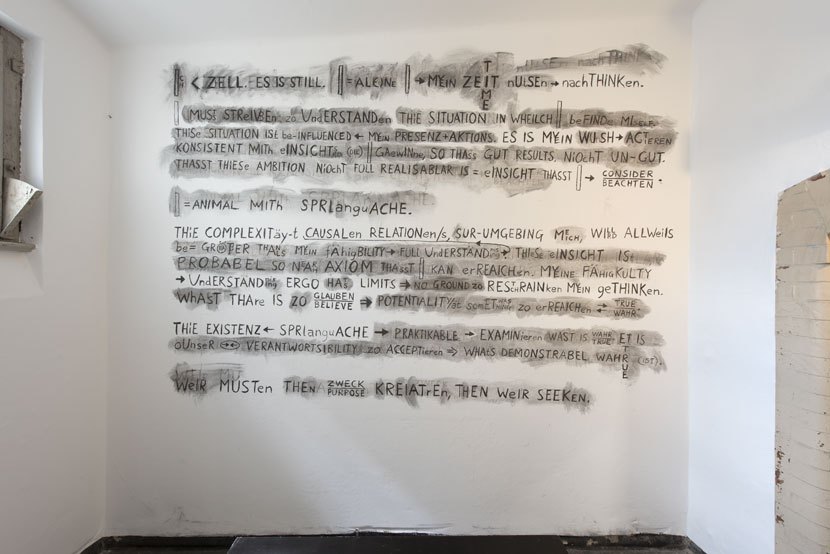 < ZELL. ES IS STILL. = ALEINE → MEIN ZEIT TIME nULSEn → nachTHINKen.
MUST STREIVEn zo UndERSTANDen THIE SITUATION IN WHEILCH beFINDe
THISe SITUATION ISt be-INFLUENCED ← MEIN PRESENZ+AKTIONS. ES IS MEIN WUSH → ACTEREN
KONSISTENT MITH eINSICHTen GAEWINNe, SO THASS GUT RESULTS, NIOcHT UN-GUT.
THASST THIESe AMBITION NIOcHT FULL REALISABLAR IS = eINSICHT THASST → CONSIDER BEACHTEN.
= ANIMAL MITH SPRLanguACHE.
THiE COMPLEXITäy-t, CAUSALen RELATIONen/s, SUR-UMGEBING MEICH, WIbb ALLWeilS
be = GRÖTER THANALS MEIN fÄhigBILITY → FULL UndERSTANDING, THIESe eINSICHT ISt
PROBABEL SO NWAS AXIÓM THASST KAN erREAICHEn. MEINE FÄHigKULTY
→ UndERSTANDING ERGO HAS LIMITS → NO GROUND zo RESTRAINken MEIN geTHINKen.
WhAST THAre IS ZO GLAUBEN BELIEVE → POTENTIALITY/ät somETWAS zo erREAICHEn → TRUE WAHR.
THIE EXISTENZ ← SPRlanguACHE → PRAKTIKABLE → EXAMINieren WAST IS WAHR TRUE ET IS
OUnseR VERANTWORTSIBILITY zo ACCEPTieren ⇒ WHATS DEMONSTRABEL WAHR TRUE (IST).
WeIR MUSTen THEN ZWECK PURPOSE KREIATrEn, THEN WeIR SEEKen.